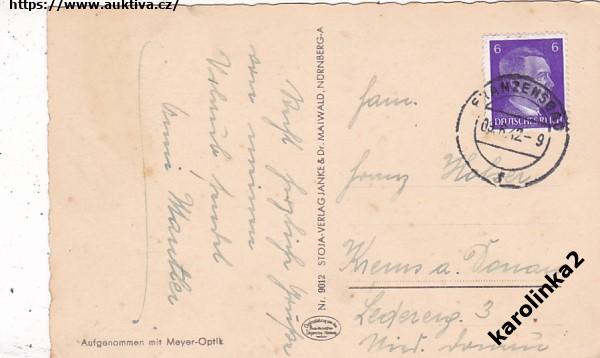 https://www.auktiva.cz/
Recht herzliche Grüße
von meinem
Urlaub sendet
Anni
Aufgenommen mit Meyer-Optik
Nr. 9012 STOJA-VERLAG JANKE & Dr. MAIWALD, NÜRNBERG-A
6 6
DEUTSCHES REICH
FRANZENSBAD
42-9
Fam.
Franz
Krems a. Donau
Ledererg. 3
Nied. Donau
karolinka2